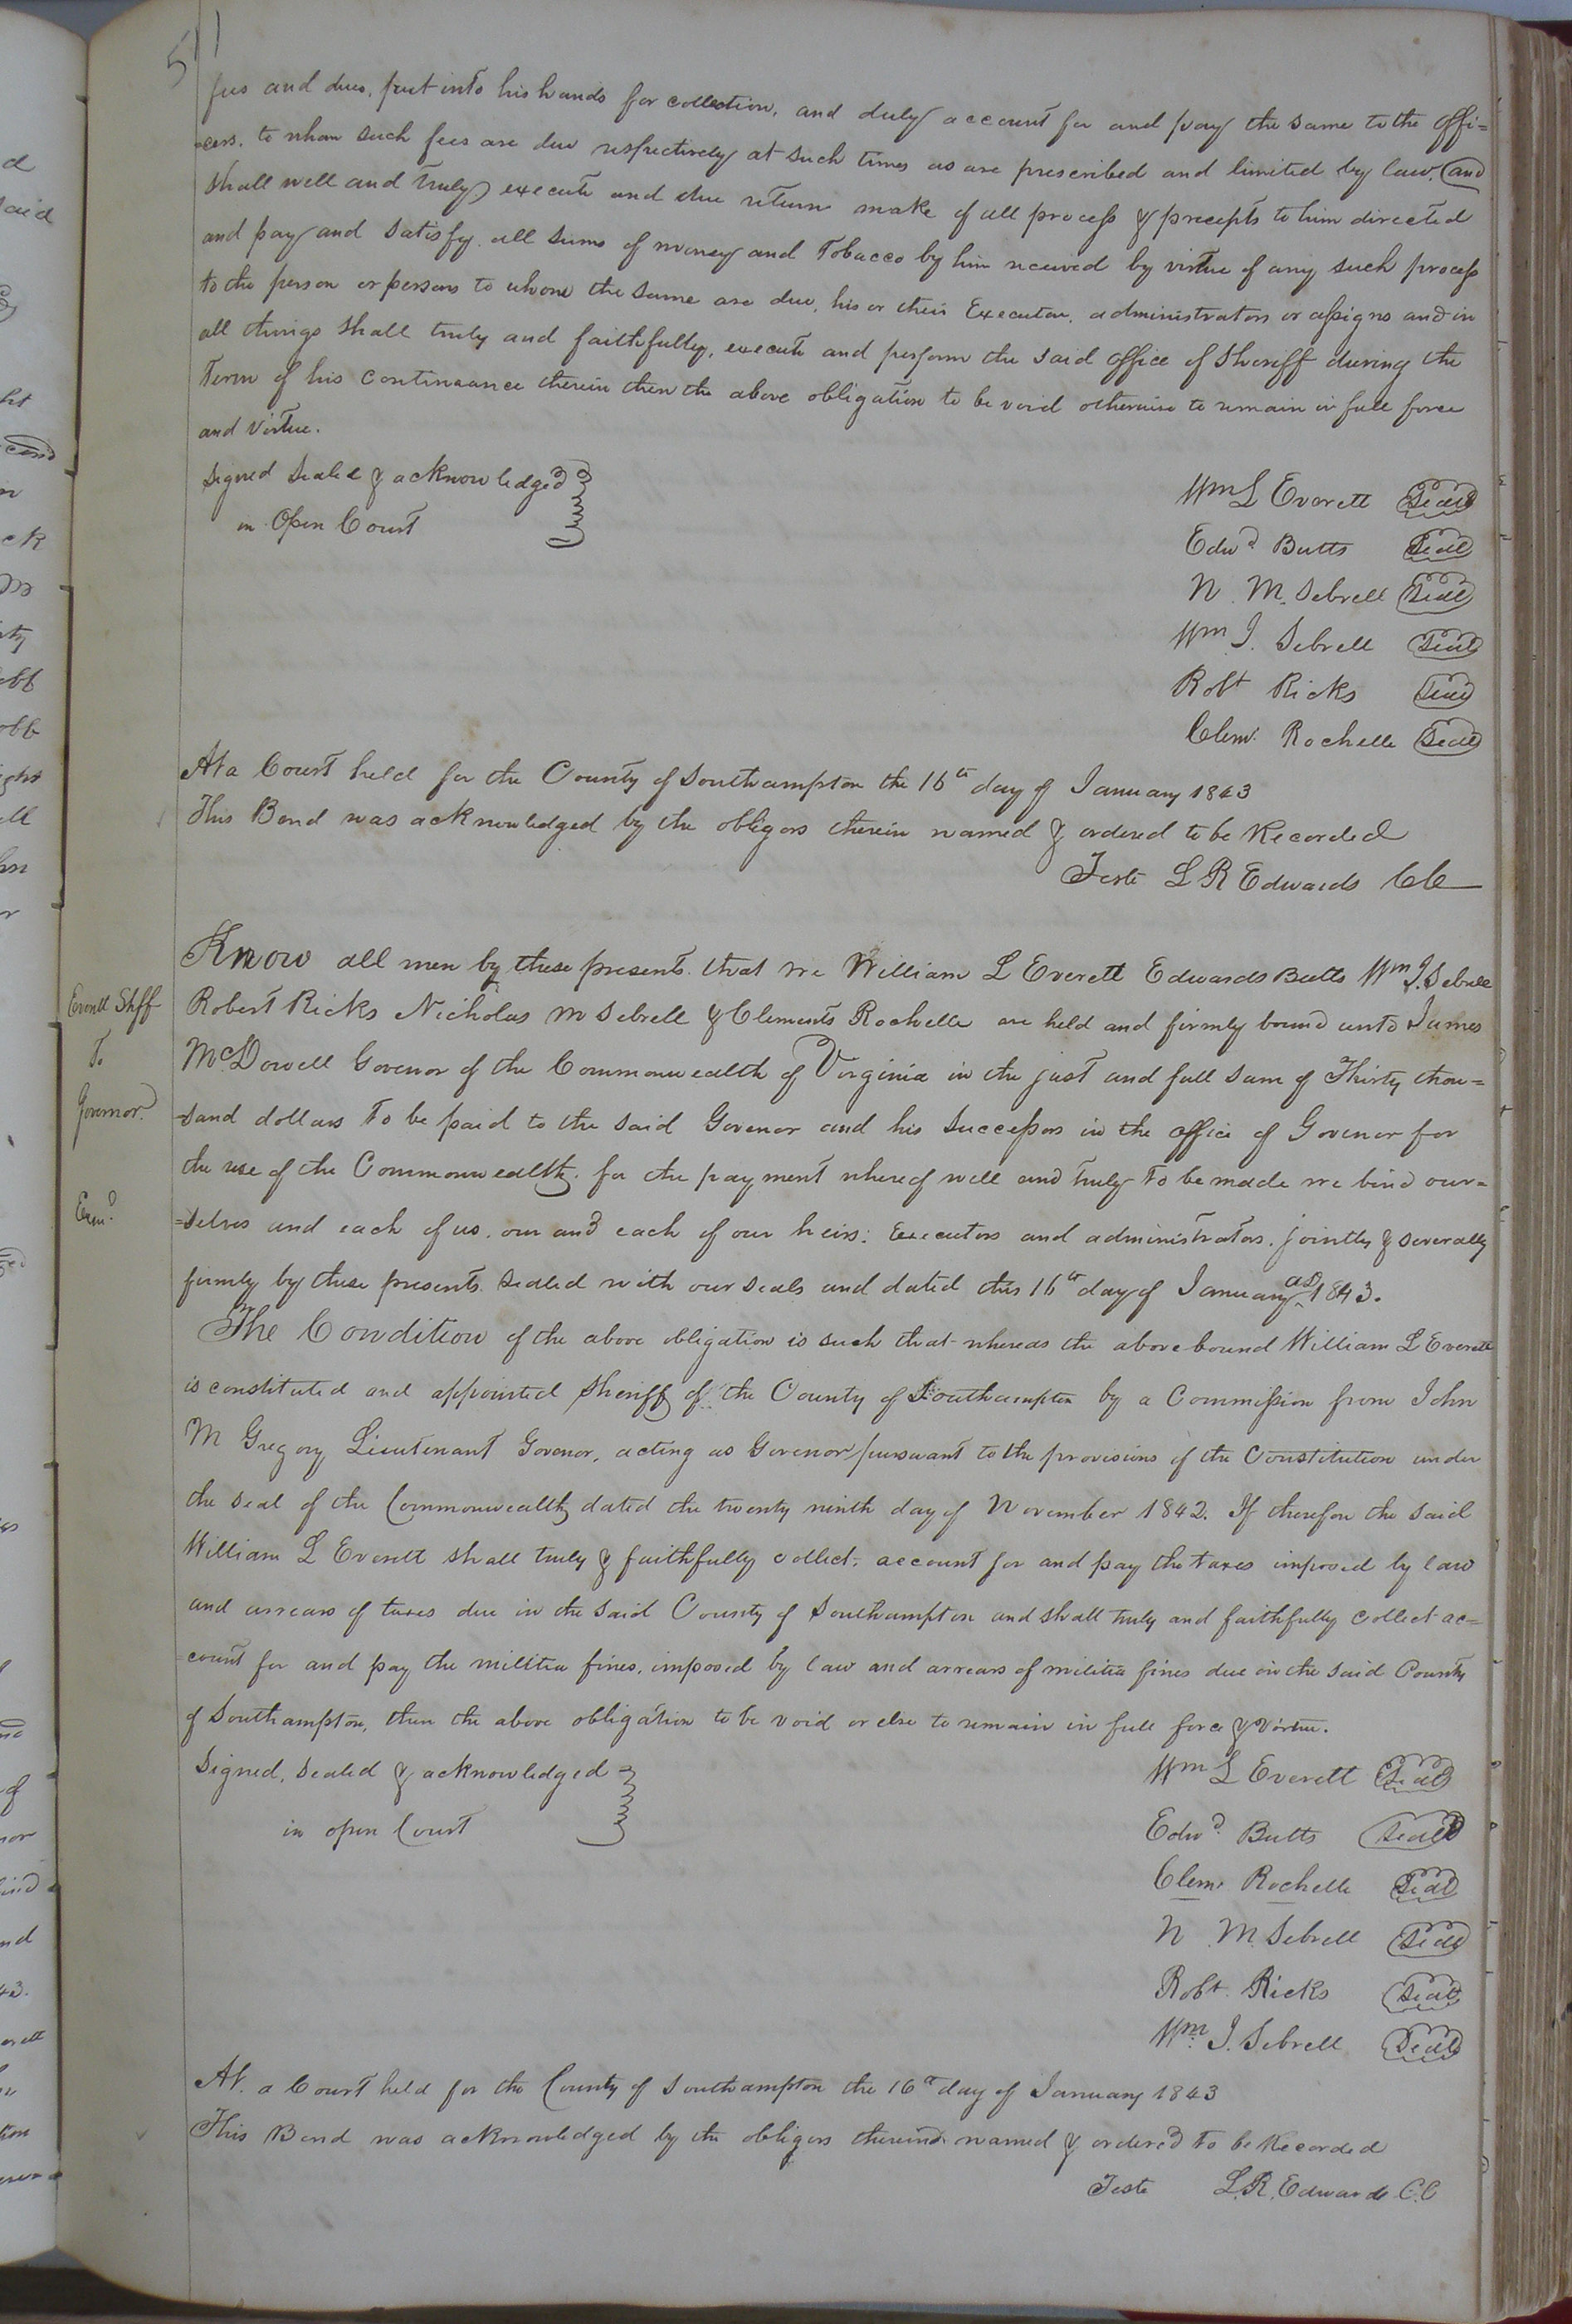 511
fees and dues, put into his hands for collection, and duly account for and pay the same to the offi=
=cers, to whom such fees are due respectively at such times as are prescribed and limited by law, and
shall well and truly execute and due return make of all process & precepts to him directed
and pay and satisfy all sums of money and Tobacco by him received by virtue of any such process
to the person or persons to whom the same are due, his or their Executors, administrators or assigns and in
all things shall truly and faithfully, execute and perform the said office of Sheriff during the
Term of his continuance therein then the above obligation to be void otherwise to remain in full force
and virtue.
Signed Sealed & acknowledged
in Open Court
Wm L Everett Seal
Edwd Butts Seal
N. M. Sebrell Seal
Wm J. Sebrell Seal
Robt Ricks Seal
Clem. Rochelle Seal
At a Court held for the County of Southampton the 16th day of January 1843
This Bond was acknowledged by the obligors therein named & ordered to be Recorded
Teste L R Edwards CC
Know all men by these presents that we William L Everett Edwards Butts Wm J. Sebrell
Everett Shff
To
Governor.
Exmd
Robert Ricks Nicholas M Sebrell & Clements Rochelle are held and firmly bound unto James
McDowell Govenor of the Commonwealth of Virginia in the just and full sum of Thirty thou=
=sand dollars to be paid to the said Govenor and his Successors in the office of Govenor for
the use of the Commonwealth, for the payment whereof well and truly to be made we bind our=
=selves and each of us, our and each of our heirs, Executors and administrators, jointly & severally
firmly by these presents sealed with our seals and dated this 16th day of January AD 1843.
The Condition of the above obligation is such that whereas the above bound William L Everett
is constituted and appointed Sheriff of the County of Southampton by a Commission from John
M Gregory Lieutenant Govenor, acting as Govenor pursuant to the provisions of the Constitution under
the seal of the Commonwealth dated the twenty ninth day of November 1842. If therefore the said
William L Everett shall truly & faithfully collect, account for and pay the taxes imposed by law
and arrears of taxes due in the said County of Southampton and shall truly and faithfully collect ac=
=count for and pay the militia fines, imposed by law and arrears of militia fines due in the said County
of Southampton, then the above obligation to be void or else to remain in full force & virtue.
Signed, Sealed & acknowledged
in open Court
Wm L Everett Seal
Edwd Butts Seal
Clem. Rochelle Seal
N M. Sebrell Seal
Robt. Ricks Seal
Wm. J. Sebrell Seal
At. a Court held for the County of Southampton the 16th day of January 1843
This Bond was acknowledged by the obligors therein named & ordered to be Recorded
Teste L. R. Edwards C.C